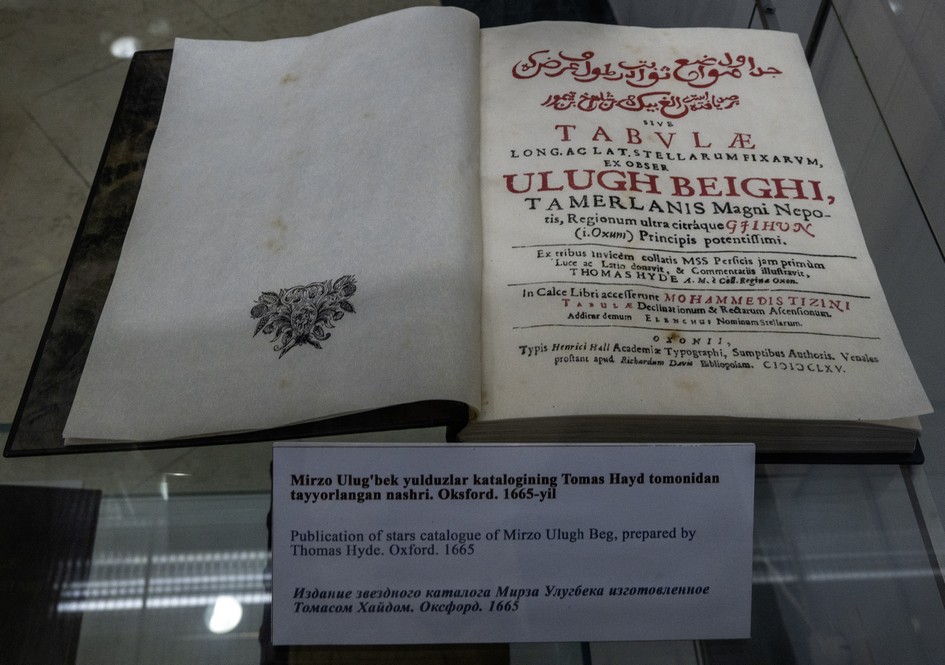 جداول مواضع ثوابت در طول و عرض كه
برصد يافته است الغ بيك بن شاهرخ بن تيمور
SIVE
TABVLÆ
LONG. AC LAT. STELLARUM FIXARVM,
EX OBSER
ULUGH BEIGHI,
TAMERLANIS Magni Nepo-
tis, Regionum ultra citràque GJIHUN
(i. Oxum) Principis potentissimi.
Ex tribus invicém collatis MSS Persicis jam primùm
Luce ac Latio donavit, & Commentariis illustravit,
THOMAS HYDE A. M. è Coll. Reginæ Oxon.
In Calce Libri accesserunt MOHAMMEDIS TIZINI
TABULÆ Declinationum & Rectarum Ascensionum.
Additur demum ELENCHUS Nominum Stellarum.
OXONII,
Typis Henrici Hall Academiæ Typographi, Sumptibus Authoris. Venales
prostant apud Richardum Davis Bibliopolam. CIↃIↃCLXV.
Mirzo Ulug'bek yulduzlar katalogining Tomas Hayd tomonidan
tayyorlangan nashri. Oksford. 1665-yil
Publication of stars catalogue of Mirzo Ulugh Beg, prepared by
Thomas Hyde. Oxford. 1665
Издание звездного каталога Мирза Улугбека изготовленное
Томасом Хайдом. Оксфорд. 1665